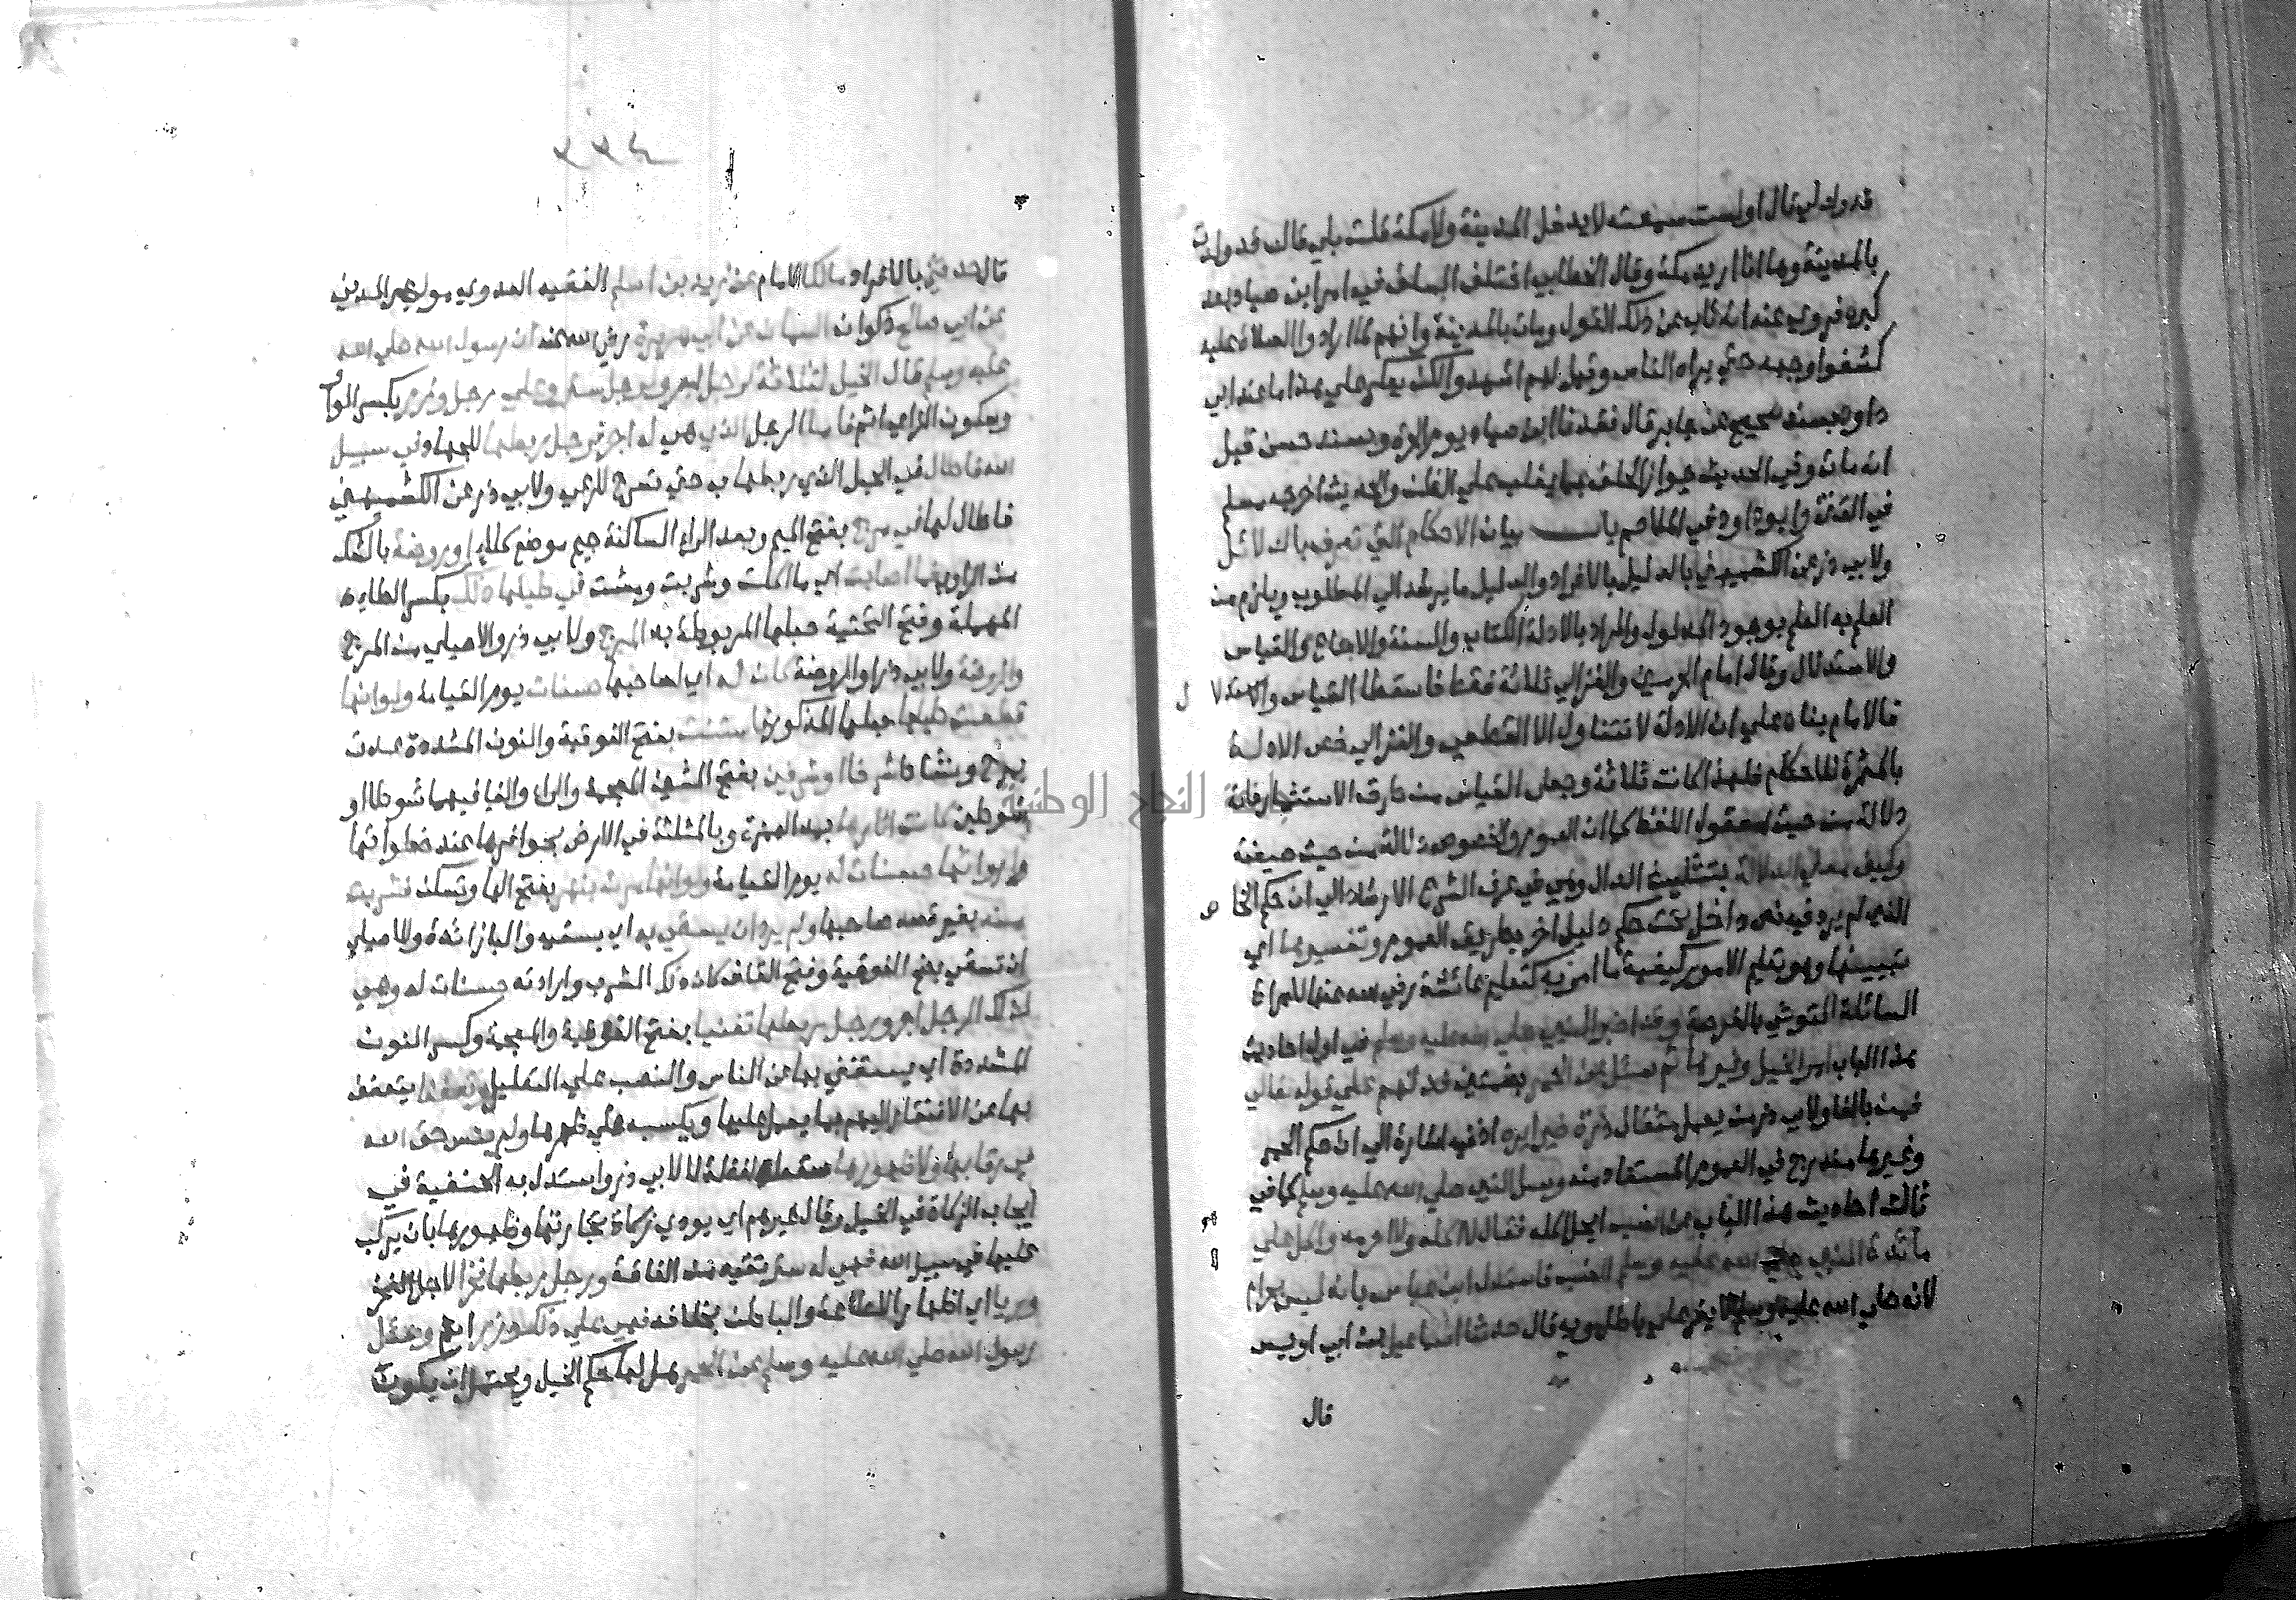 قد ولد لي قال اولست سمعته لا يدخل المدينة ولا مكة قلت بلي قال قد ولدت
بالمدينة وها انا اريد مكة وقال الخطابي اختلف السلف في امر ابن صياد بعد
كبره فروي عنه انه تاب عن ذلك القول ومات بالمدينة وانهم لما ارادوا الصلاة عليه
كشفوا وجهه حتي يراه الناس وقيل لهم اشهدوا لكن يعكر علي هذا ما عند ابي
داود بسند صحيح عن جابر قال فقدنا ابن صياد يوم الحرة وبسند حسن قيل
انه مات وفي الحديث جواز الحلف بما يغلب علي الظن والحديث اخرجه مسلم
في الفتن وابو داود في الملاحم باب بيان الاحكام التي تعرف بالدلائل
ولابي ذر عن الكشميهني بالدليل بالافراد والدليل ما يرشد الي المطلوب ويلزم من
العلم به العلم بوجود المدلول والمراد بالادلة الكتاب والسنة والاجماع والقياس
والاستدلال وقال امام الحرمين والغزالي ثلاثة فقط فاسقطا القياس والاستدلال
فالامام بناه علي ان الادلة لا تتناول الا القطعي والغزالي خص الادلة
بالمثمرة للاحكام فلهذا كانت ثلاثة وجعل القياس من طرق الاستثمار فانه
دلالة من حيث معقول اللفظ كما ان العموم والخصوص دلالة من حيث صيغته
وكيف معني الدلالة بتثليث الدال وهي في عرف الشرع الارشاد الي ان حكم الخاص
الذي لم يرد فيه نص داخل تحت حكم دليل اخر بطريق العموم وتفسيرها اي
تبيينها وهو تعليم الامور كيفية ما امر به كتعليم عائشة رضي الله عنها للمراة
السائلة التوضي بالفرصة وقد اخبر النبي صلي الله عليه وسلم في اول احاديث
هذا الباب امر الخيل وغيرها ثم سئل عن الحمر بضمتين فدلهم علي قوله تعالي
فمن بالفا ولابي ذر من يعمل مثقال ذرة خيرا يره اذ فيه اشارة الي ان حكم الحمر
وغيرها مندرج في العموم المستفاد منه وسل النبي صلي الله عليه وسلم كما في
ثالث احاديث هذا الباب عن الضب ايحل اكله فقال لا اكله ولا احرمه واكل علي
مائدة النبي صلي الله عليه وسلم الضب فاستدل ابن عباس بانه ليس بحرام
لانه صلي الله عليه وسلم لا يقر علي باطل وبه قال حدثنا اسماعيل بن ابي اويس
قال
٣٣٤
قال حدثني بالافراد مالك الامام عن زيد بن اسلم الفقيه العدوي مولي عمر المدني
عن ابي صالح ذكوان السمان عن ابي هريرة رضي الله عنه ان رسول الله صلي الله
عليه وسلم قال الخيل لثلاثة لرجل اجر ولرجل ستر وعلي رجل وزر بكسر الواو
وسكون الزاي اثم فاما الرجل الذي هي له اجر فرجل ربطها للجهاد في سبيل
الله فاطال في الحبل الذي ربطها به حتي تسرح للرعي ولابي ذر عن الكشميهني
فاطال لها في مرج بفتح الميم وبعد الراء الساكنة جيم موضع كلاء او روضة بالشك
من الراوي فما اصابت اي ما اكلت وشربت ومشت في طيلها ذلك بكسر الطاء
المهملة وفتح التحتية حبلها المربوطة به المرج ولابي ذر والاصيلي من المرج
والروضة ولابي ذر او الروضة كان له اي لصاحبها حسنات يوم القيامة ولو انها
قطعت طيلها حبلها المذكور فاستنت بفتح الفوقية والنون المشددة عدت
بمرج ونشاط شرفا او شرفين بفتح الشين المعجمة والراء والفا فيهما شوطا او
شوطين كانت اثارها بمد الهمزة وبالمثلثة في الارض بحوافرها عند خطواتها
وارواثها حسنات له يوم القيامة ولو انها مرت بنهر بفتح الها وتسكن فشربت
منه بغير قصد صاحبها ولم يرد ان يسقي به اي يسقيه والبا زائدة وللاصيلي
ان تسقي بضم الفوقية وفتح القاف كان ذلك الشرب وارادته حسنات له وهي
لذلك الرجل اجر ورجل ربطها تغنيا بفتح الفوقية والمعجمة وكسر النون
المشددة اي يستغني بها عن الناس والنصب علي التعليل وتعففا يتعفف
بها عن الافتقار اليهم بما يعمل عليها ويكسبه علي ظهرها ولم ينس حق الله
في رقابها ولا ظهورها سقط لفظة لا لابي ذر واستدل به الحنفية في
ايجاب الزكاة في الخيل وقال غيرهم اي يودي زكاة تجارتها وظهورها بان يركب
عليها في سبيل الله فهي له ستر تقيه من الفاقة ورجل ربطها فخرا لاجل الفخر
وريا اي اظهارا للطاعة والباطن بخلافه فهي علي ذلك وزر اثم وسئل
رسول الله صلي الله عليه وسلم عن الحمر هل لها حكم الخيل ويحتمل ان يكون